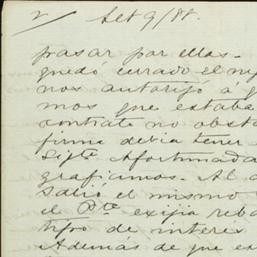 2/ Set 9/88.
pasar por ellas.-
quedó curado el
nos autorizó a
mos que estaba
contrate no obst
firma debia tener
Sigte Afortunada
graficamos. Al
salió el mismo
el Pte exijia reba
tipo de interes
Además de que es